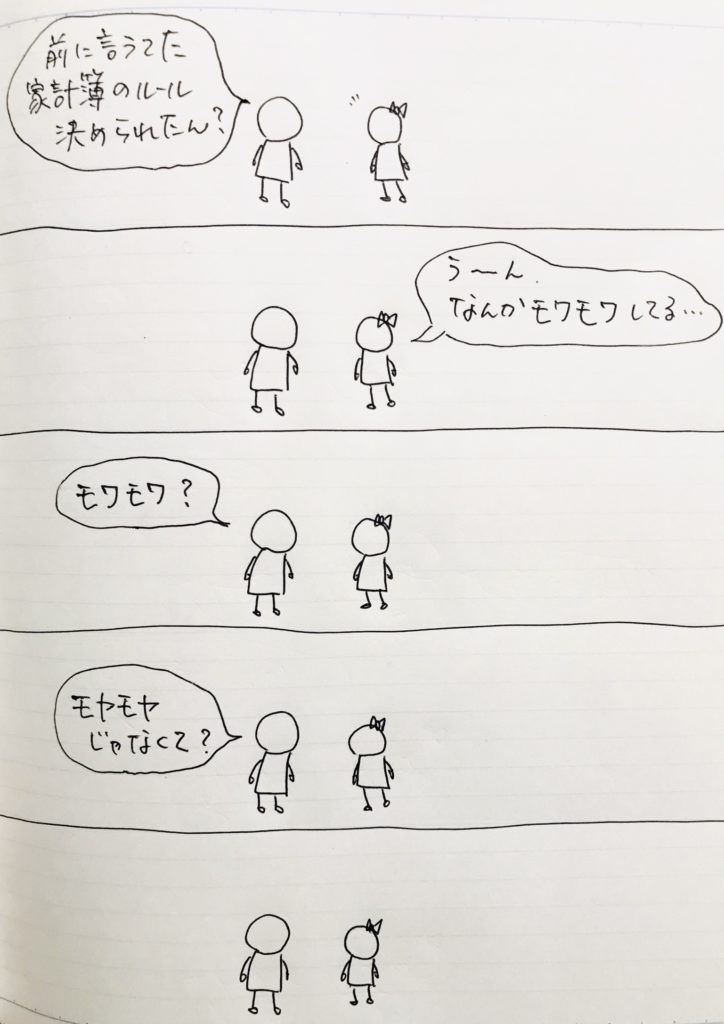 前に言うてた
家計簿のルール
決められたん?
う〜ん.
なんかモワモワしてる…
モワモワ?
モヤモヤ
じゃなくて?